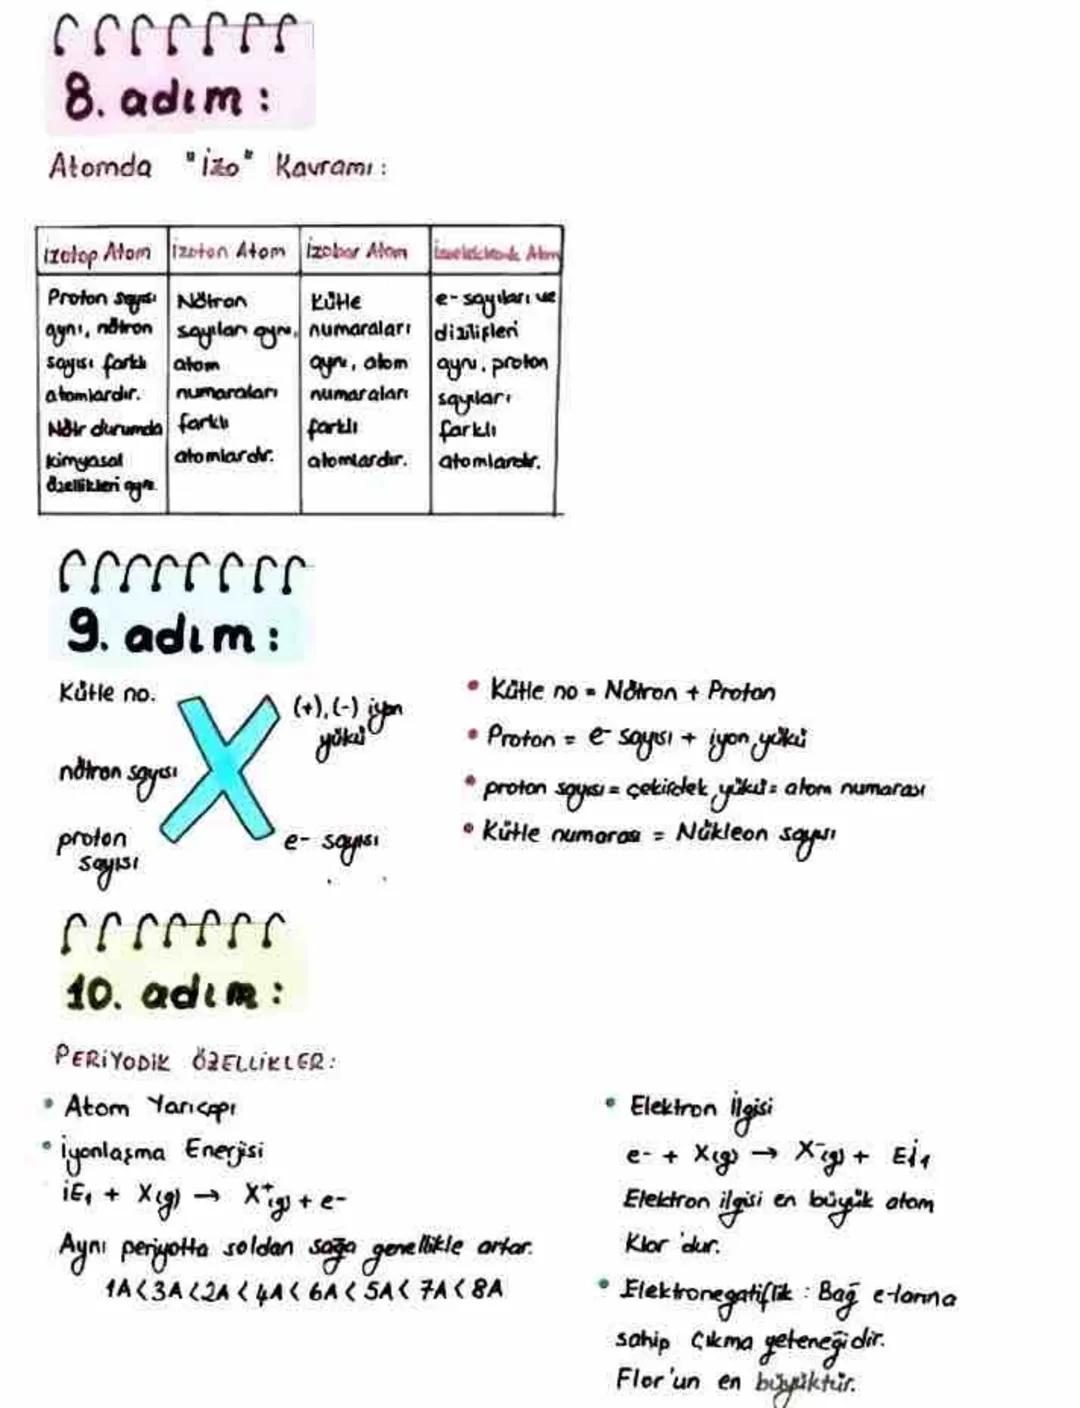 8. adım :
Atomda "izo" Kavramı :
izotop Atom
Proton sayısı
aynı, nötron
sayısı farklı
atomlardır.
Nötr durumda
kimyasal
özellikleri aynı.
izoton Atom
Nötron
sayıları aynı,
atom
numaraları
farklı
atomlardır.
izobar Atom
Kütle
numaraları
aynı, atom
numaraları
farklı
atomlardır.
İzoelektronik Atom
e- sayıları ve
dizilişleri
aynı, proton
sayıları
farklı
atomlardır.
9. adım :
Kütle no.
nötron sayısı
proton
sayısı
X
(+), (-) iyon
yükü
e- sayısı
• Kütle no = Nötron + Proton
• Proton = e- sayısı + iyon yükü
• proton sayısı = çekirdek yükü = atom numarası
• Kütle numarası = Nükleon sayısı
10. adım :
PERİYODİK ÖZELLİKLER :
• Atom Yarıçapı
• iyonlaşma Enerjisi
iE₁ + X(g) → X⁺(g) + e-
Aynı periyotta soldan sağa genellikle artar.
1A < 3A < 2A < 4A < 6A < 5A < 7A < 8A
• Elektron ilgisi
e- + X(g) → X⁻(g) + Ei₁
Elektron ilgisi en büyük atom
Klor 'dur.
• Elektronegatiflik : Bağ e-larına
sahip çıkma yeteneğidir.
Flor'un en büyüktür.